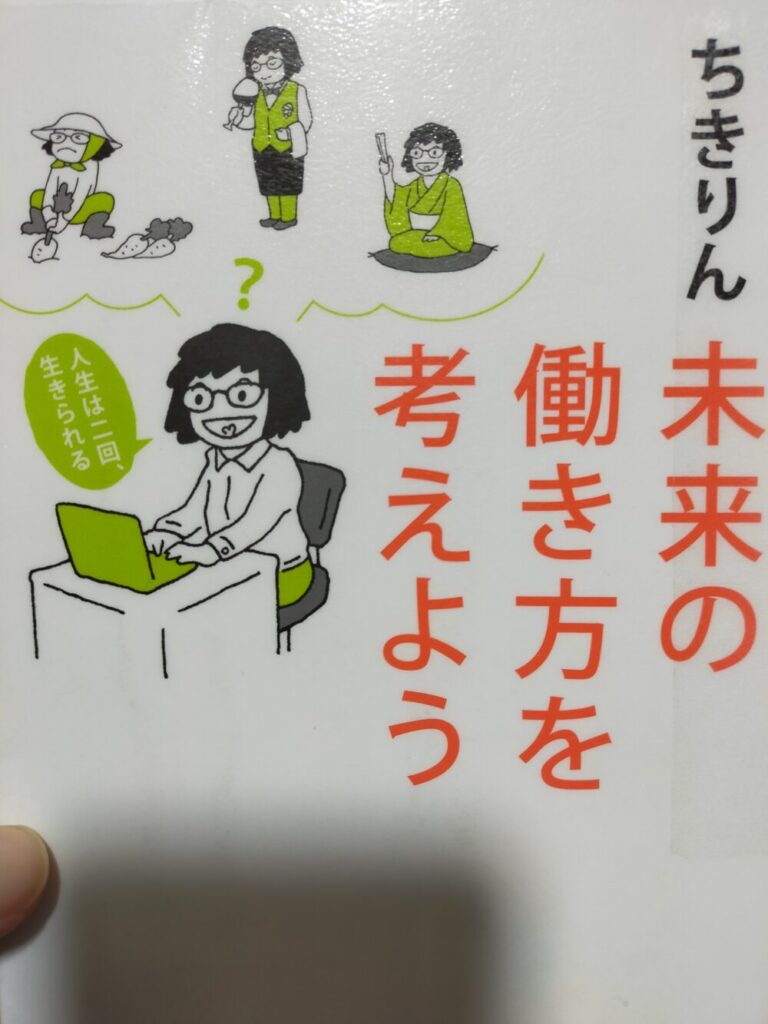 ちきりん
未来の
働き方を
考えよう
?
人生は二回、
生きられる